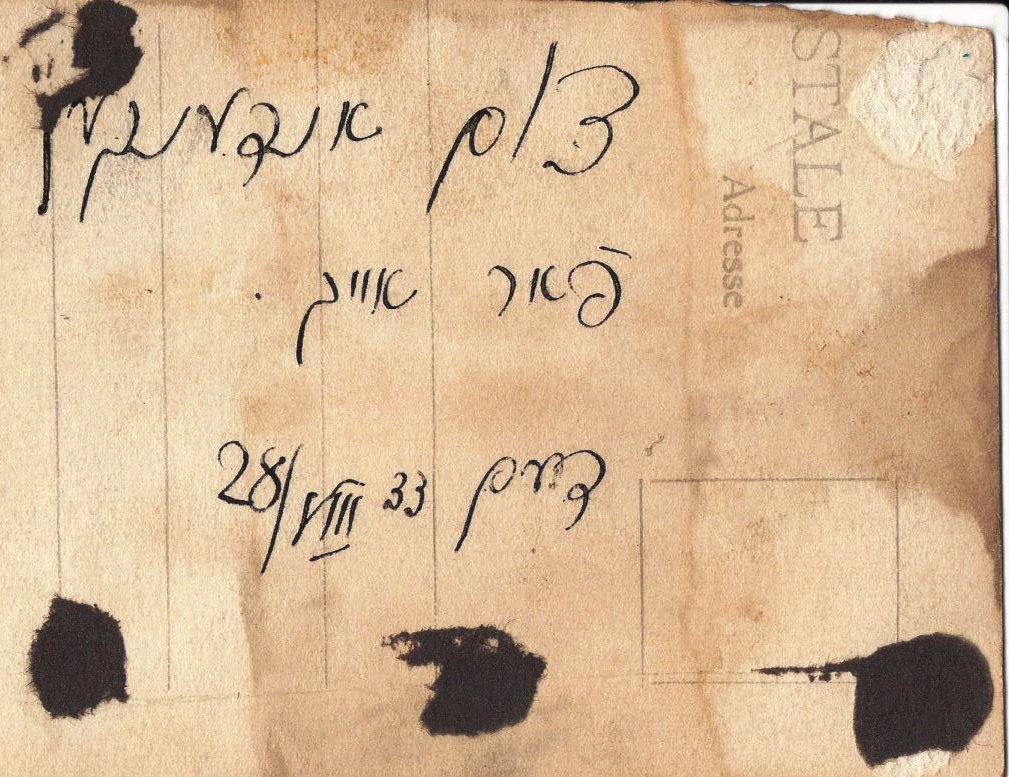 צום אנדענקען
פֿאר אייך .
דעם 28/VIII 33
STALE
Adresse